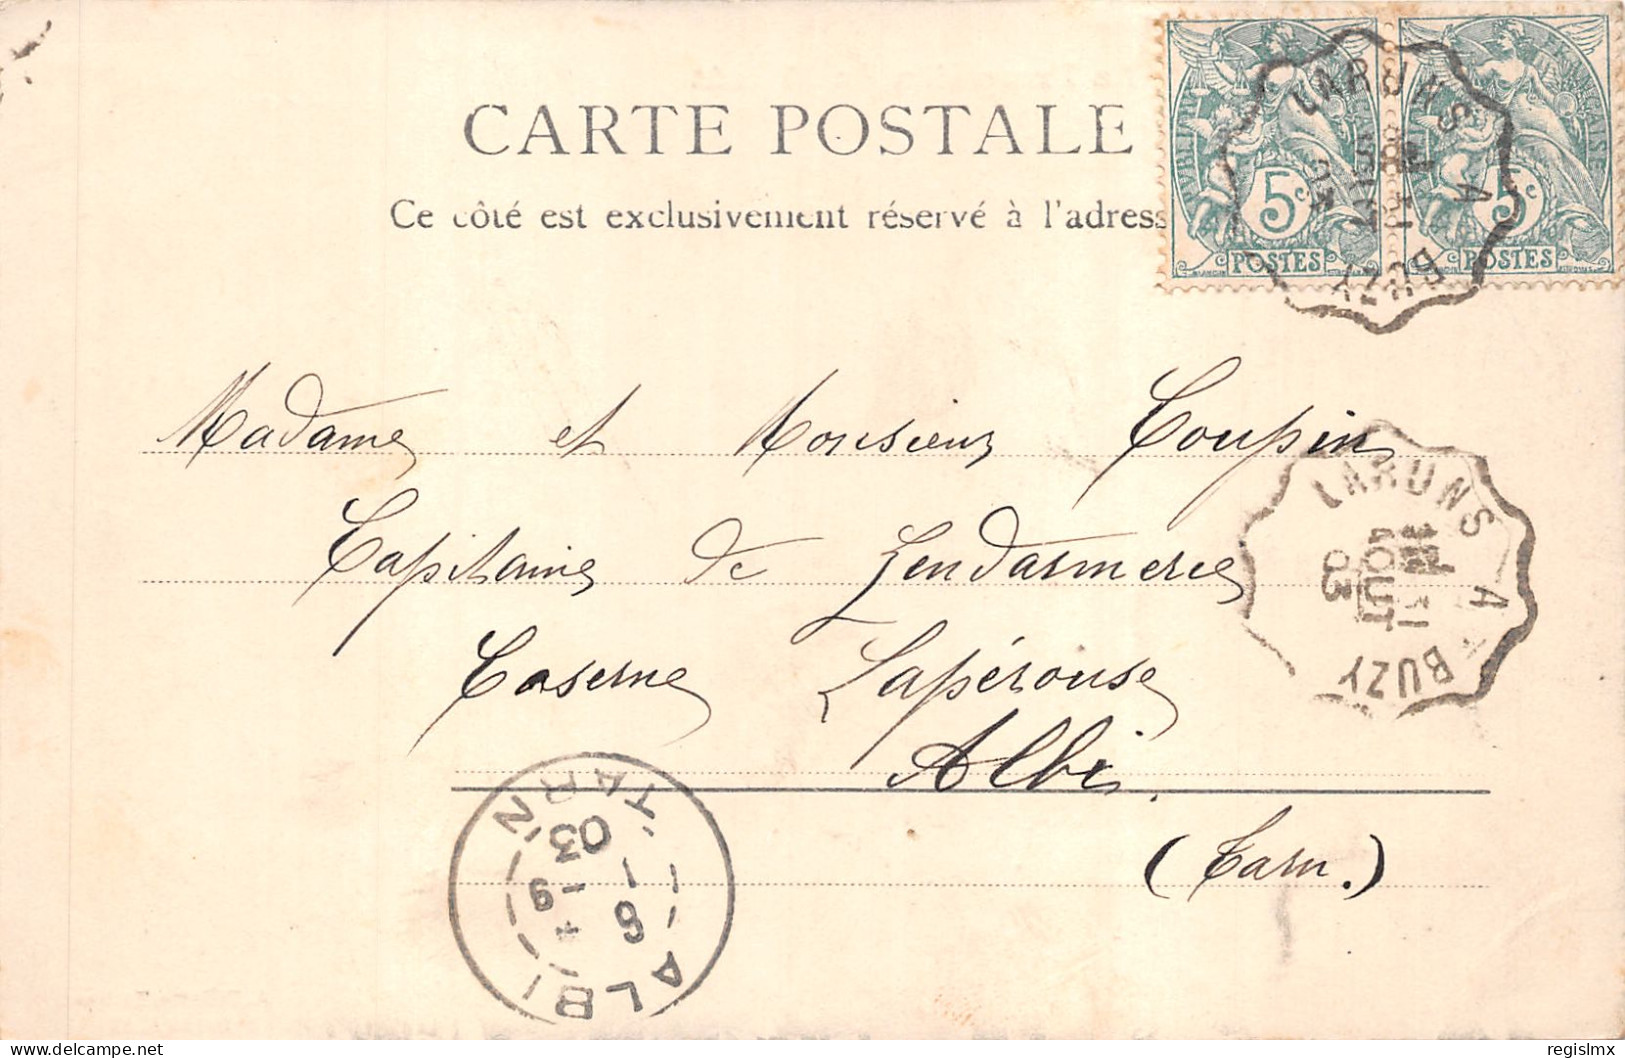 CARTE POSTALE
Ce côté est exclusivement réservé à l'adress
5c 5c
POSTES POSTES
LARUNS A BUZY
31
AOUT
03
Madame et Monsieur Coupin
Capitaine de Gendarmerie
LARUNS A BUZY
31
AOUT
03
Caserne Lapérouse
Albi.
(Tarn.)
ALBI TARN
03
delcampe.net
regislmx